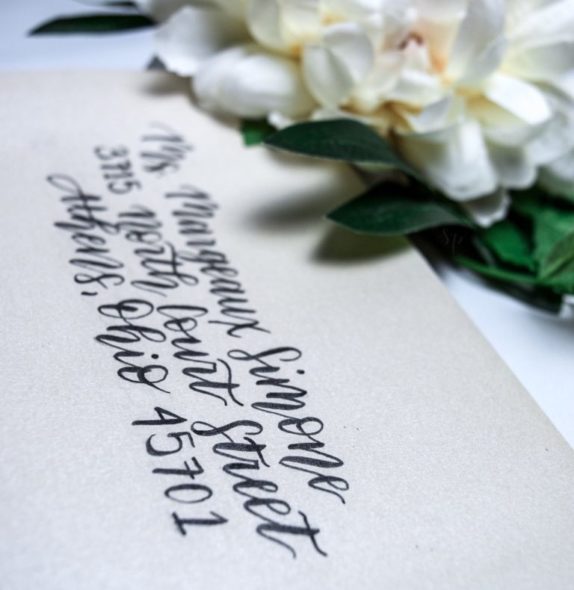 Ms. Simone
3715 North Court Street
Athens, Ohio 45701